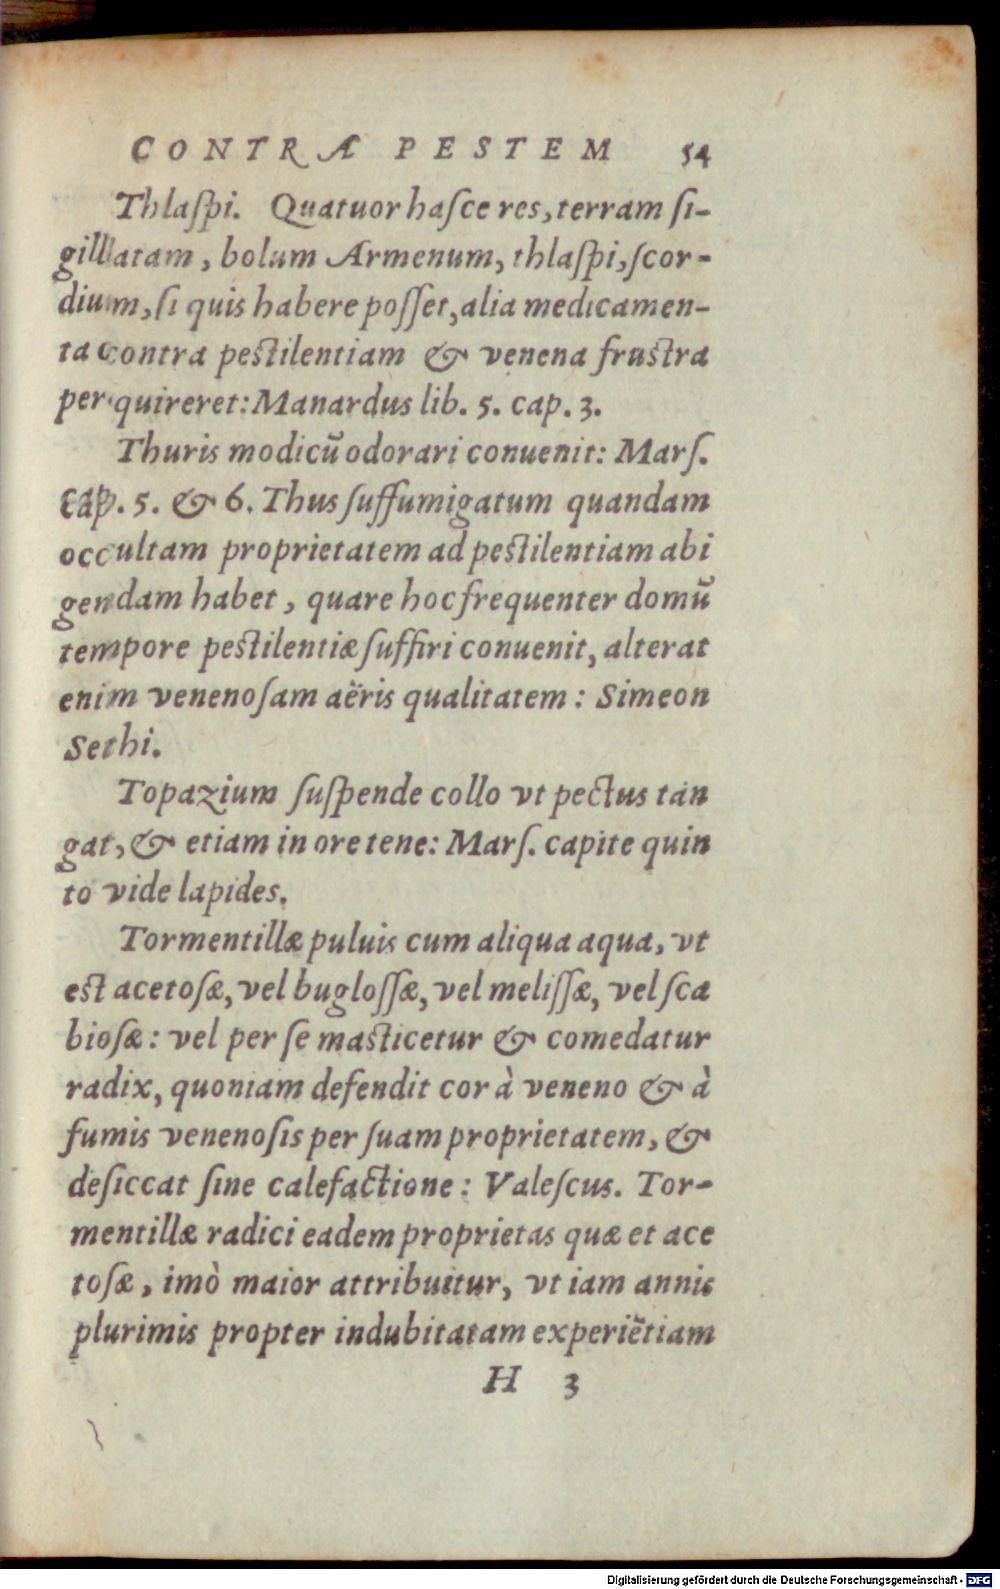 CONTRA PESTEM 54
Thlaſpi. Quatuor haſce res, terram ſi-
gillatam, bolum Armenum, thlaſpi, ſcor-
dium, ſi quis habere poſſet, alia medicamen-
ta contra peſtilentiam & venena fruſtra
perquireret: Manardus lib. 5. cap. 3.
Thuris modicũ odorari conuenit: Marſ.
cap. 5. & 6. Thus ſuffumigatum quandam
occultam proprietatem ad peſtilentiam abi
gendam habet, quare hoc frequenter domũ
tempore peſtilentiæ ſuffiri conuenit, alterat
enim venenoſam aëris qualitatem: Simeon
Sethi.
Topazium ſuſpende collo vt pectus tan
gat, & etiam in ore tene: Marſ. capite quin
to vide lapides.
Tormentillæ puluis cum aliqua aqua, vt
eſt acetoſæ, vel bugloſſæ, vel meliſſæ, vel ſca
bioſæ: vel per ſe maſticetur & comedatur
radix, quoniam defendit cor à veneno & à
fumis venenoſis per ſuam proprietatem, &
deſiccat ſine calefactione: Valeſcus. Tor-
mentillæ radici eadem proprietas quæ et ace
toſæ, imò maior attribuitur, vt iam annis
plurimis propter indubitatam experiẽtiam
H 3
Digitalisierung gefördert durch die Deutsche Forschungsgemeinschaft - DFG